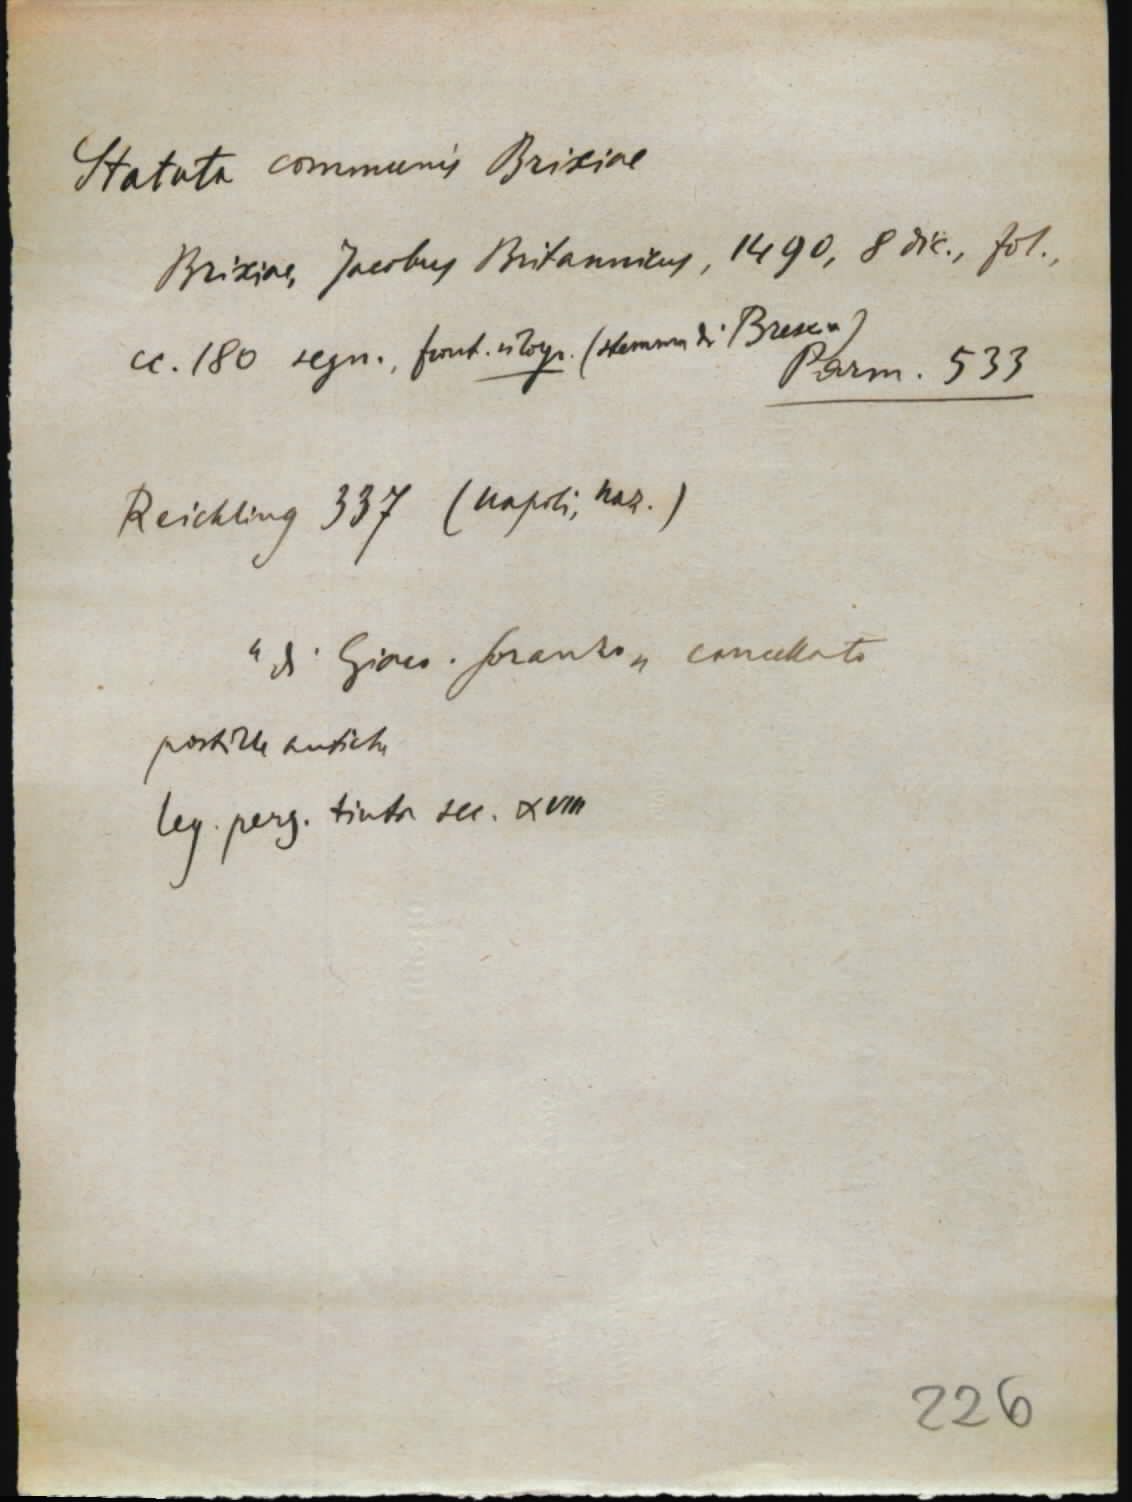 Statuta communis Brixiae
Brixiae, Jacobus Britannicus, 1490, 8 dic., fol.,
cc. 180 segn., front. silogr. (stemma di Brescia)
Parm. 533
Reichling 337 (Napoli, Naz.)
"di Giaco. Soranzo" cancellato
postille antiche
leg. perg. tinta sec. XVIII
226